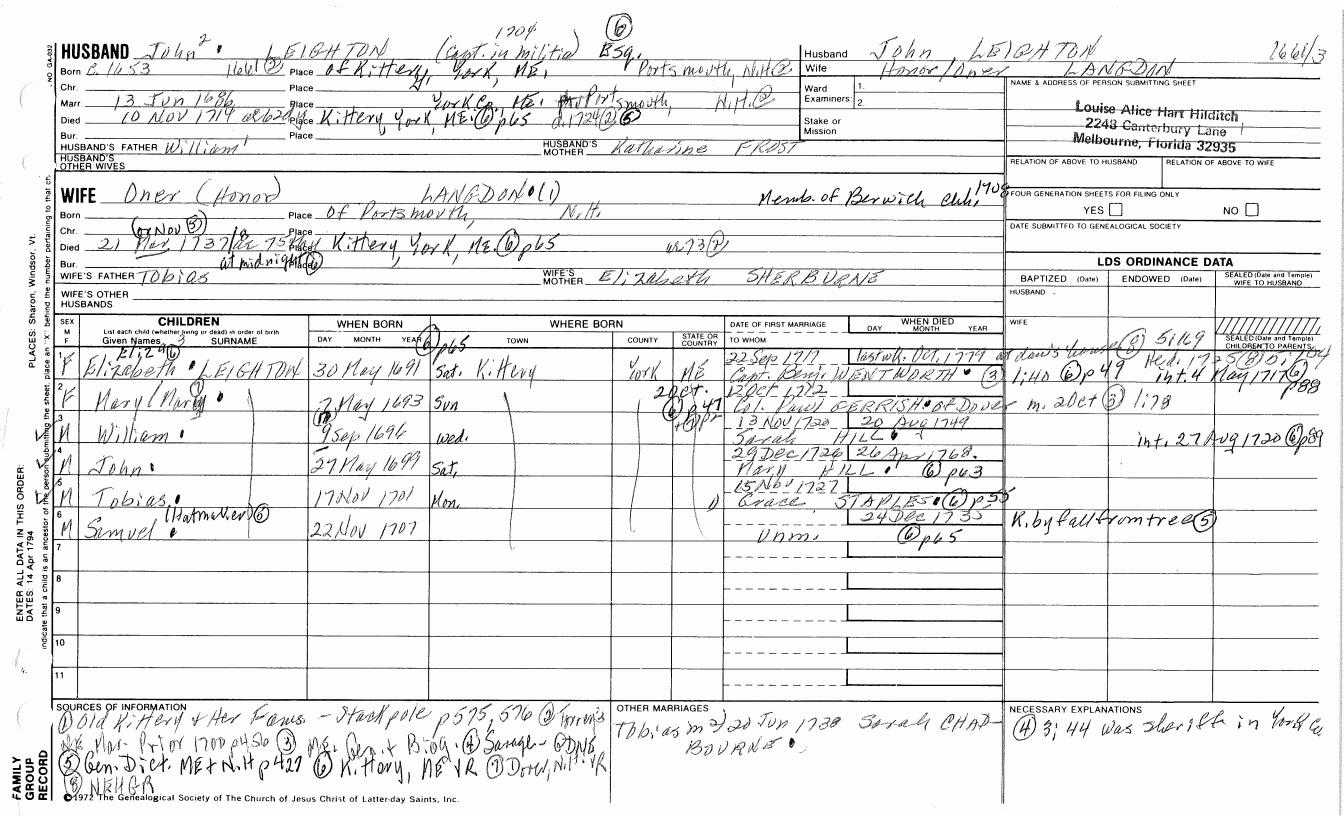 1704 ⑥
HUSBAND John² • LEIGHTON (Capt. in militia) Esq.
Born c. 1653 1661② Place of Kittery, York, ME. Portsmouth, N.H.②
Chr. Place
Marr 13 Jun 1686 Place York Co. ME. Portsmouth, N.H.②
Died 10 Nov 1714 Place Kittery York, ME.⑥p65 d.1724②⑤
Bur. Place
HUSBAND'S FATHER William¹ HUSBAND'S MOTHER Katharine FROST
HUSBAND'S OTHER WIVES
Husband John LEIGHTON 1661/3
Wife Honor/Oner LANGDON
Ward 1.
Examiners: 2.
Stake or Mission
NAME & ADDRESS OF PERSON SUBMITTING SHEET
Louise Alice Hart Hilditch
2248 Canterbury Lane
Melbourne, Florida 32935
RELATION OF ABOVE TO HUSBAND RELATION OF ABOVE TO WIFE
WIFE Oner (Honor) LANGDON•(1) Memb. of Berwick chh. 1708
Born Place of Portsmouth, N.H.
Chr. (or Nov ⑤) Place
Died 21 Mar 1737/8 ae 75 Place Kittery, York, ME.⑥p65
Bur. at midnight⑥ Place
WIFE'S FATHER Tobias WIFE'S MOTHER Elizabeth SHERBURNE
WIFE'S OTHER HUSBANDS
FOUR GENERATION SHEETS FOR FILING ONLY
YES NO
DATE SUBMITTED TO GENEALOGICAL SOCIETY
LDS ORDINANCE DATA
BAPTIZED (Date) ENDOWED (Date) SEALED (Date and Temple) WIFE TO HUSBAND
HUSBAND
WIFE
SEALED (Date and Temple) CHILDREN TO PARENTS
SEX M F CHILDREN List each child (whether living or dead) in order of birth Given Names SURNAME
WHEN BORN DAY MONTH YEAR
WHERE BORN TOWN COUNTY STATE OR COUNTRY
DATE OF FIRST MARRIAGE TO WHOM
WHEN DIED DAY MONTH YEAR
⑥p65
1 F Eliza⑥ Elizabeth • LEIGHTON 30 May 1691 Sat. Kittery York ME 22 Sep 1717 last wk. Oct. 1779 at dau's house⑧ 51:169
Capt. Benj. WENTWORTH•③ 1:40 ⑥p49 int. 4 May 1717⑥ p88
2 F Mary • 7 May 1693 Sun 2 Oct. ⑥p47 12 Oct 1712
Col. Paul GERRISH• of Dover m. 2 Oct③ 1:78
3 M William • 9 Sep 1696 Wed. 13 Nov 1720 20 Aug 1749
Sarah HILL • int. 27 Aug 1720⑥p89
4 M John • 27 May 1699 Sat. 29 Dec 1726 26 Apr 1768
Mary HILL. ⑥p63
5 M Tobias • 17 Nov 1701 Mon. 15 Nov 1727
Grace STAPLES•⑥p55
6 M Samuel • (Hatmaker)⑤ 22 Nov 1707 24 Dec 1735 K. by fall from tree⑤
Unm. ⑥p65
7
8
9
10
11
SOURCES OF INFORMATION
① Old Kittery & Her Fams. – Stackpole p575, 576 ② Torrey's
N.E. Mar. Prior 1700 p456 ③ ME. Gen. & Biog. ④ Savage–GDNE
⑤ Gen. Dict. ME & N.H p427 ⑥ Kittery, ME VR ⑦ Dover, N.H. VR
⑧ NEHGR
OTHER MARRIAGES
Tobias m 2) 20 Jun 1738 Sarah CHAD-
BOURNE •
NECESSARY EXPLANATIONS
④ 3:44 was sheriff in York Co
©1972 The Genealogical Society of The Church of Jesus Christ of Latter-day Saints, Inc.
FAMILY GROUP RECORD
ENTER ALL DATA IN THIS ORDER:
DATES: 14 Apr 1794
PLACES: Sharon, Windsor, Vt.
indicate that a child is an ancestor of the person submitting the sheet, place an "X" behind the number pertaining to that ch